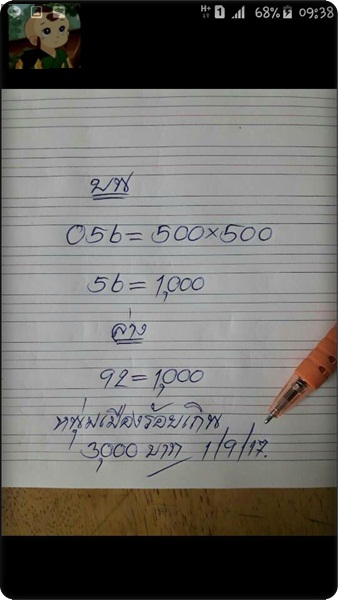 H+ 1 68% 09:38
บน
056 = 500×500
56 = 1,000
ล่าง
92 = 1,000
หนุ่มเมืองร้อยเกิน
3,000 บาท 1/9/17.